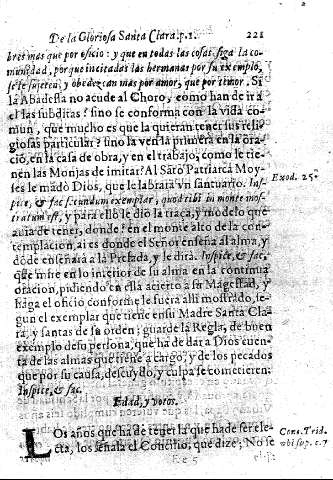 De la Gloriosa Santa Clara. p. 1. 221
bres mas que por oficio: y que en todas las cosas siga la co-
munidad, porque incitadas las hermanas por su exemplo,
se le sujeten, y obedezcan mas por amor, que por timor. Si
la Abadessa no acude al Choro, como han de ir a
el las subditas? sino se conforma con la vida co-
mun, que mucho es que la quieran tener sus reli-
giosas particular? sino la ven la primera en la ora-
ciõ, en la casa de obra, y en el trabajo, como le tie-
nen las Monjas de imitar? Al Sãto Patriarca Moy-
ses le mãdò Dios, que le labrara vn santuario. Ins-
pice, & fac secundum exemplar, quod tibi in monte mos-
tratum est, y para ello le dio la traça, y modelo que
auia de tener, donde? en el monte alto de la con-
templacion, ai es donde el Señor enseña al alma, y
dõde enseñarà a la Prelada, y le dirà. Inspice, & fac,
que mire en lo interior de su alma en la continua
oracion, pidiendo en ella acierto a su Magestad, y
haga el oficio conforme le fuera alli mostrado, se-
gun el exemplar que tiene en su Madre Santa Cla-
ra, y santas de su orden; guarde la Regla, de buen
exemplo de su persona, que ha de dar a Dios cuen-
ta de las almas que tiene a cargo, y de los pecados
que por su causa, descuydo, y culpa se cometieren.
Inspice, & fac.
Exod. 25.
Edad, y votos.
LOs años que ha de tener la que ha de ser ele-
cta, los señala el Concilio, que dize; No se
Conc. Trid.
vbi sup. c. 7